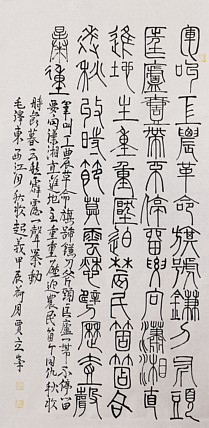 軍叫工農革命旗號鐮刀斧頭
匡廬一帶不停留要向瀟湘直
進地主重重壓迫農民箇箇同
仇秋收時節暮雲愁霹靂一聲
暴動
軍叫工農革命旗號鐮刀斧頭匡廬一帶不停留
要向瀟湘直進地主重重壓迫農民箇箇同仇秋收
時節暮雲愁霹靂一聲暴動
毛澤東西江月秋收起義甲辰